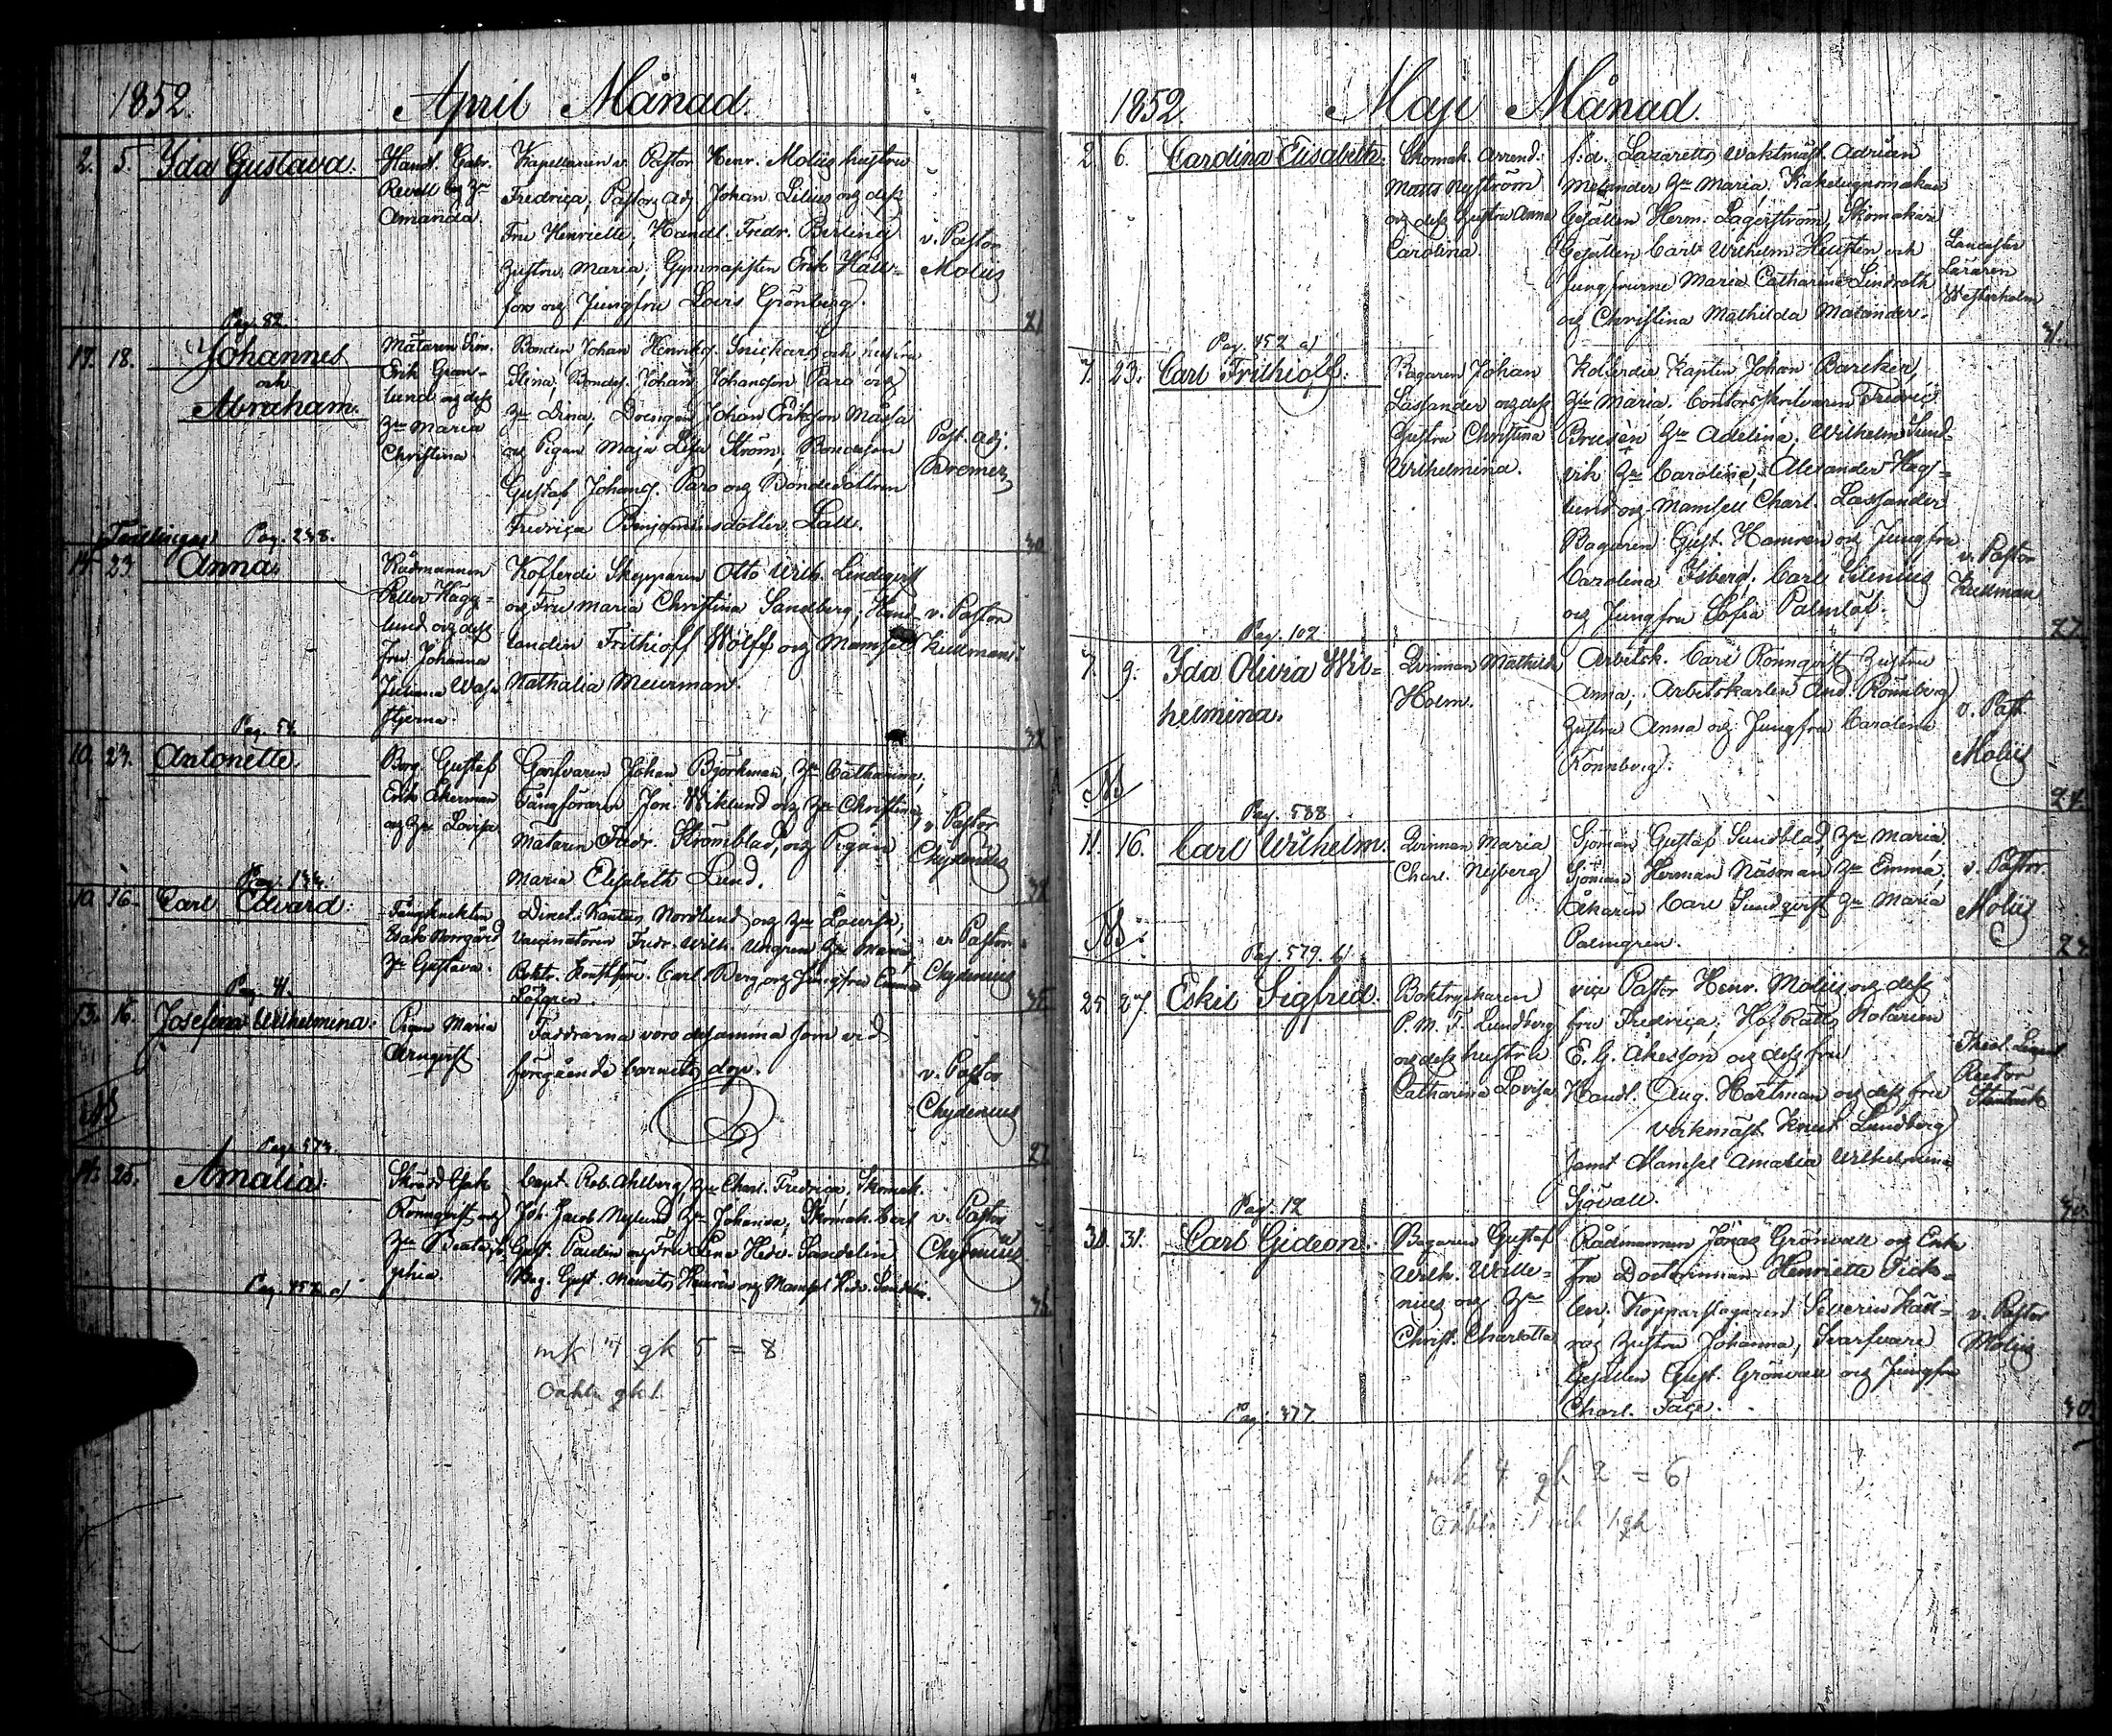 1852. April Månad.
2. 5. Ida Gustava.
Handl. Gabr.
Revell og Hu
Amanda.
Kapellanen v. Pastor Henr. Molijs hustru
Fredrica, Pastors Adj. Johan Lilius og dess
Fru Henriette, Handl. Fredr. Berlins
Hustru Maria, Gymnasisten Erik Häll-
fors og Jungfru Lovis Grönberg.
v. Pastor
Molijs
Pag. 82.
17. 18. Johannes
och
Abraham.
Mätaren Sim.
Erik Gran-
lund og dess
Hu Maria
Christina.
Bonden Johan Henriks. Snickars och hustru
Stina, Bondes. Johan Johansson Paro og
Hu Lina, Drengen Johan Eriksson Massa
og Pigan Maja Lisa Ström, Bondeson
Gustaf Johans. Paro og Bondedottren
Fredrica Benjaminsdotter Lall.
Past. Adj.
Bremer
Tvillingar Pag. 238.
30
14 23 Anna.
Rådmannen
Petter Hägg-
lund og dess
fru Johanna
Juliana Wasa
stjerna.
Kofferdi Skepparen Otto Wilh. Lindqvist
og Fru Maria Christina Sandberg, Hand-
landen Frithioff Wolff og Mamsel
Nathalia Meurman.
v. Pastor
Kullman.
Pag. 54.
10. 23. Antonette
Borg. Gustaf
Erik Åkerman
og Hu Lovisa
Garfvaren Johan Björkman, Hu Catharina,
Fångföraren Jon. Wiklund og Hu Christina,
Mätaren Fredr. Strömblad, og Pigan
Maria Elisabeth Lund.
v. Pastor
Chydenius
10. 16. Carl Edvard:
Fångknekten
Esak Norrgård
Hu Gustava.
Direct. Kantor Nordlund og Hu Lovisa,
Vaccinatören Fredr. Wilh. Ungren Hu Maria,
Carl Berg og Jungfru Emma
Löfgren.
v. Pastor
Chydenius
Pag. 41.
13. 16. Josefina Wilhelmina:
Pigan Maria
Ernqvist.
Faddrarna voro desamma som vid
föregående barnets dop.
v. Pastor
Chydenius
Pag. 573.
27
14. 25. Amalia.
Skrädd. Isak
Rönnqvist og
Hu Beata So-
phia.
Capt. Rob. Ahlberg, Hu Charl. Fredrica, Skomak.
Joh. Jacob Nylund Hu Johanna, Skomak. Carl
Gust. Paulin og Fru Lena Hedv. Sandelin
Bag. Gust. Maurits Hamrén og Mamsel Hedv. Sandelin.
v. Pastor
Chydenius
mk 4 gk 5 = 8
oäkta gk 1.
1852. Maji Månad.
2. 6. Carolina Elisabeth.
Skomak. Arrend.
Matts Nyström
og dess Hustru Anna
Carolina.
f.d. Lazaretts Waktmäst. Adrian
Melander Hu Maria, Kakelugnsmakare
Gesällen Herm. Lagerström, Skomakare
Gesällen Carl Wilhelm Hellsten och
Jungfrurne Maria Catharina Lindroth
og Christina Mathilda Malander.
Lancaster
Läraren
Westerholm
Pag. 452 a)
7. 23. Carl Frithiolf:
Bagaren Johan
Lassander og dess
Hustru Christina
Wilhelmina.
Kofferdie Kapten Johan Barcker,
Hu Maria. Contorsskrifvaren Fredric
Brusén Hu Adelina. Wilhelm Sund-
vik Hu Carolina, Alexander Hag-
lund og Mamsell Charl. Lassander
Bagaren Gust. Hamrén og Jungfru
Carolina Isberg. Carl Silenius
og Jungfru Sofia Palmlöf.
v. Pastor
Kullman
Pag. 102
27
7. 9. Ida Olivia Wil-
helmina.
Qvinnan Mathilda
Holm.
Arbetsk. Carl Rönnqvist Hustru
Anna, Arbetskarlen And. Rönnberg
Hustru Anna og Jungfru Carolina
Rönnberg.
v. Past.
Molijs
Pag. 588
24.
11. 16. Carl Wilhelm.
Qvinnan Maria
Charl. Nyberg
Sjöman Gustaf Sundblad, Hu Maria,
Sjöman Herman Näsman Hu Emma,
Åkaren Carl Sundqvist Hu Maria
Palmgren.
v. Pastor
Molijs
Pag. 579. b)
25. 27. Eskil Sigfrid.
Boktryckaren
P. M. F. Lundberg
og dess hustru
Catharina Lovisa
vice Pastor Henr. Molijs og dess
fru Fredrica, Hof Rätts Notarien
E. G. Åkesson og dess fru
Handl. Aug. Hartman og dess fru
Verkmäst. Knut Lundberg
samt Mamsel Amalia Wilhelmina
Sjövall.
Rector
Stenbäck
Pag. 12
30. 31. Carl Gideon.
Bagaren Gustaf
Wilh. Wille-
nius og Hu
Christ. Charlotta
Rådmannen Jonas Grönvall og Enke
fru Doctorinnan Henriette Tick-
len, Kopparslagaren Severin Käll-
ros Hustru Johanna, Svarfvare
Gesällen Gust. Grönvall og Jungfru
Charl. Täce.
v. Pastor
Molijs
Pag. 377
30
mk 4 gk 2 = 6
oäkta 1 mk 1 gk